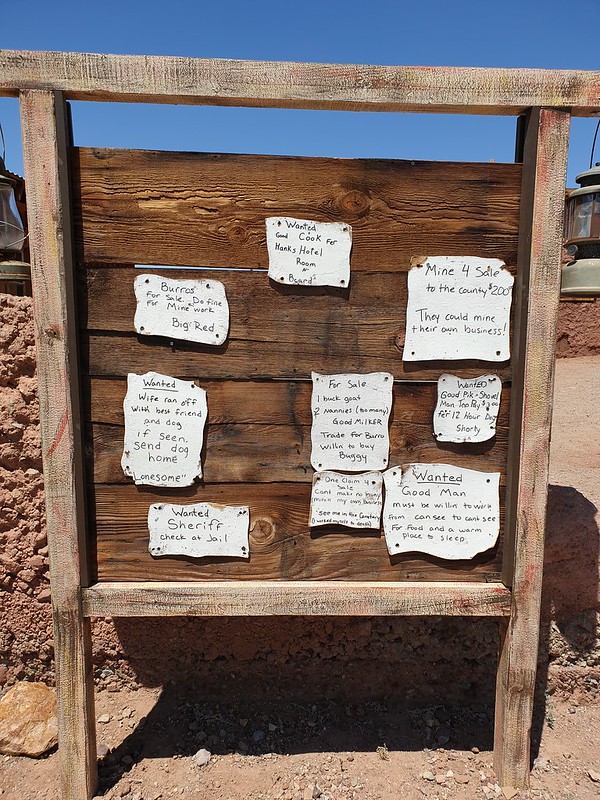 Wanted
Good Cook For
Hanks Hotel
Room
"N"
Board"
Burros
For Sale. Do fine
For Mine work
Big Red
Mine 4 Sale
to the county $200
They could mine
their own business!
Wanted
Wife ran off
With best friend
and dog
if seen,
send dog
home
Lonesome"
For Sale
1 buck goat
2 nannies (too many)
Good MILKER
Trade for Burro
willin to buy
Buggy
Wanted
Good Pik & Shovel
Man Too Pay $3.00
Per 12 hour Day
Shorty
One Claim 4
Sale
Cant make no money
minin my own business
See me in the Cemetary
(I worked myself to death)
Wanted
Good Man
must be willin to work
from can see to cant see
For Food and a warm
place to sleep.
Wanted
Sheriff
check at Jail